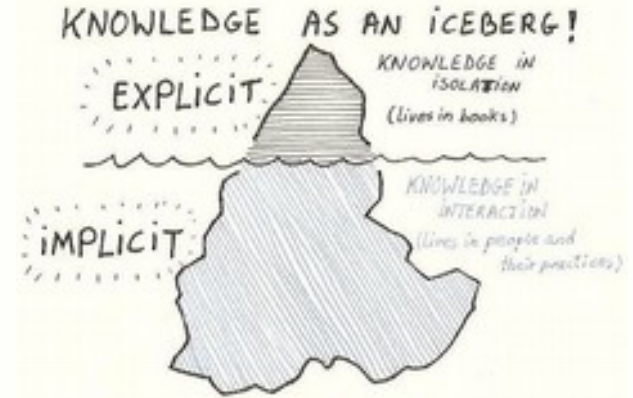 KNOWLEDGE AS AN iCEBERG!
EXPLiCiT
KNOWLEDGE iN
iSOLATION
(lives in books)
iMPLiCiT
KNOWLEDGE iN
iNTERACTiON
(lives in people and
their practices)